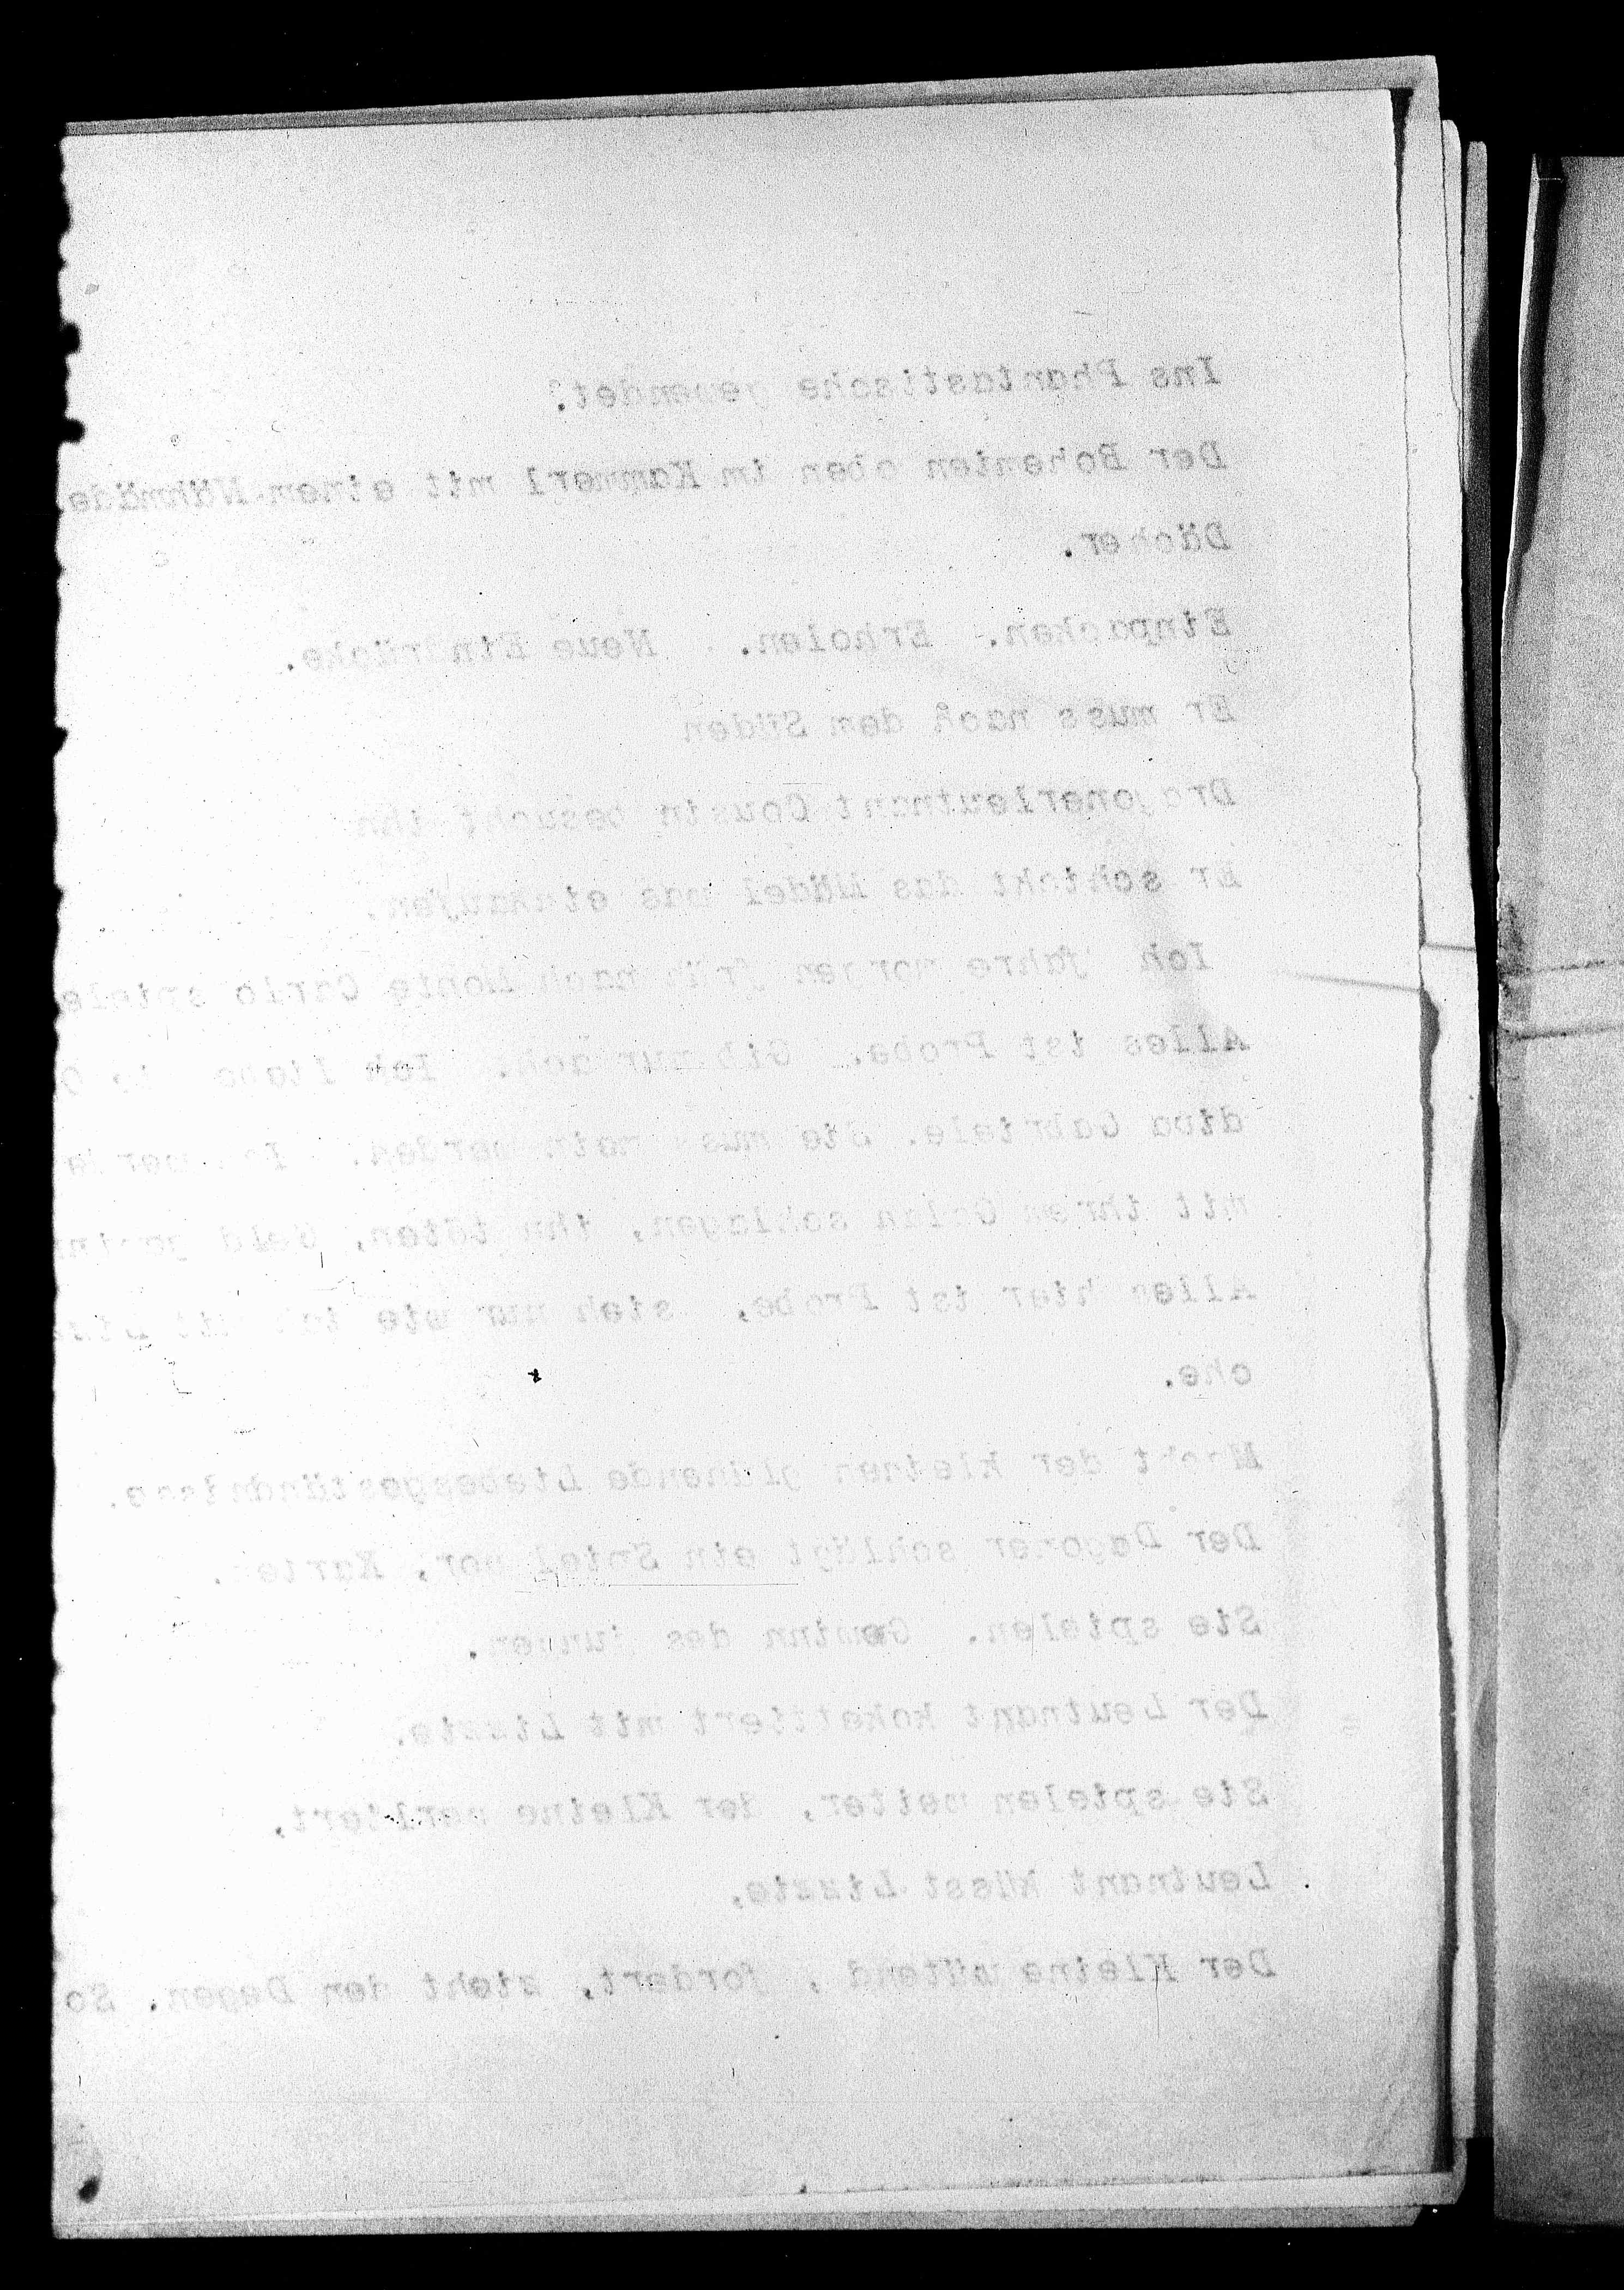 Ins Phantastische gewendet?
Der Bohemien oben im Kammerl mit einem Nähmäde
Dächer.
Einpacken. Erholen. Neue Eindrücke.
Er muss nach dem Süden
Dragonerleutnant Cousin besucht ihn
Er schickt das Mädel was einkaufen.
Ich fahre morgen früh nach Monte Carlo spiele
Alles ist Probe. Gib nur acht. Ich liebe
diva Gabriele. Sie muss mein werden.
mit ihren Galan schlagen, ihn töten, Geld
Alles hier ist Probe, sieh nur wie ich
che.
Macht der kleinen glühende Liebesgeständnisse.
Der Dagoner schlägt ein Spiel vor, Karten.
Sie spielen. Gewinn des jungen.
Der Leutnant kokettiert mit Lizzie.
Sie spielen weiter, der Kleine verliert.
Leutnant küsst Lizzie.
Der Kleine wütend , fordert, zieht den Degen. So